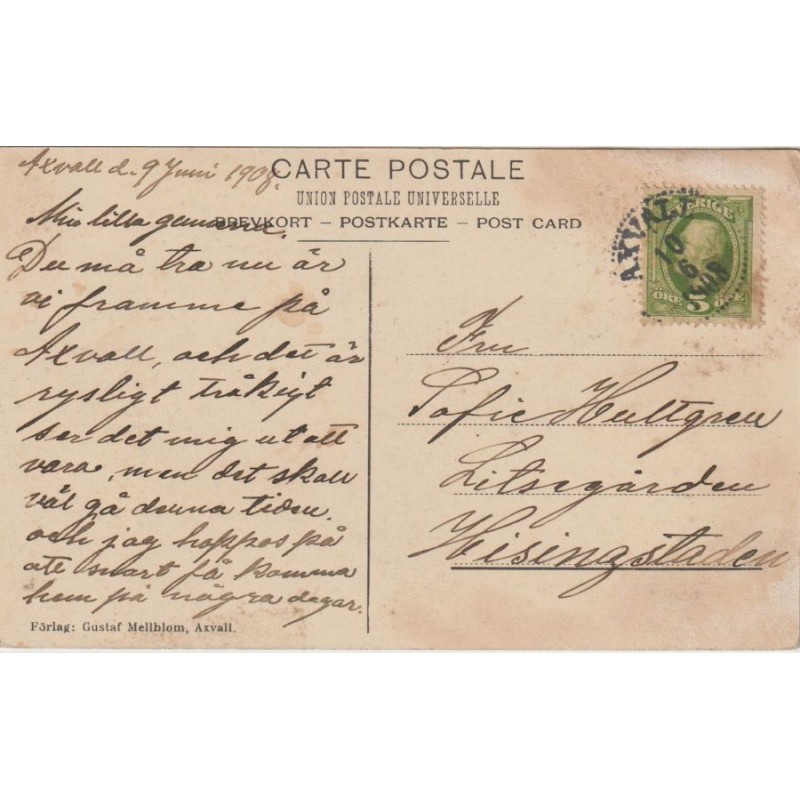 Axvall d. 9 Juni 1908.
CARTE POSTALE
UNION POSTALE UNIVERSELLE
BREVKORT – POSTKARTE – POST CARD
Min lilla gumma.
Du må tro nu är
vi framme på
Axvall, och det är
rysligt tråkigt
ser det mig ut att
vara, men det skall
väl gå denna tiden.
och jag hoppas på
att snart få komma
hem på några dagar.
Förlag: Gustaf Mellblom, Axvall.
SVERIGE
ÖRE 5 ÖRE
AXVALL
10
6
1908
Fru
Sofie Hultgren
Litsegården
Hisingstaden